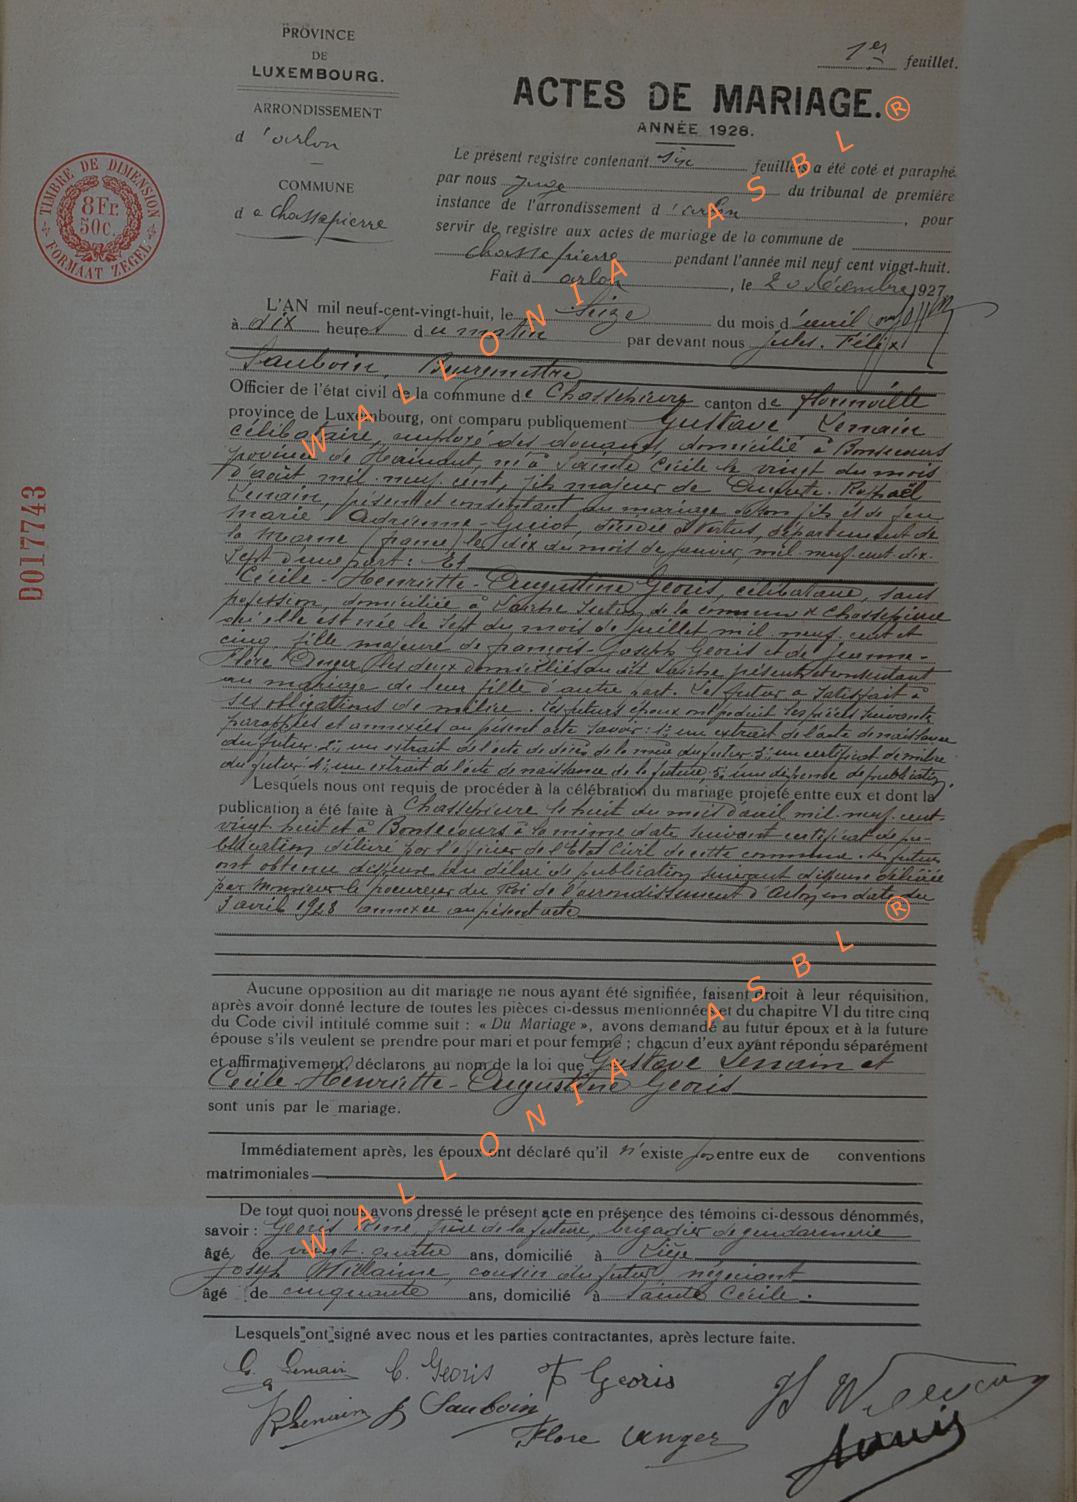 PROVINCE
DE
LUXEMBOURG.
ARRONDISSEMENT
d'arlon
COMMUNE
de Chassepierre
TIMBRE DE DIMENSION
8 Fr.
50c.
FORMAAT ZEGEL
D017743
1er feuillet.
ACTES DE MARIAGE.
ANNÉE 1928.
Le présent registre contenant six feuillets a été coté et paraphé
par nous Juge du tribunal de première
instance de l'arrondissement d'arlon, pour
servir de registre aux actes de mariage de la commune de
Chassepierre pendant l'année mil neuf cent vingt-huit.
Fait à arlon, le 20 décembre 1927
L'AN mil neuf-cent-vingt-huit, le seize du mois d'avril
à dix heures du matin par devant nous Jules. Félix
Sauboin, Bourgmestre
Officier de l'état civil de la commune de Chassepierre canton de florenville
province de Luxembourg, ont comparu publiquement Gustave Lemain
célibataire, employé des douanes, domicilié à Bonsecours
province de Hainaut, né à Sainte Cécile le vingt du mois
d'août mil neuf cent, fils majeur de Auguste Raphaël
Lemain, présent et consentant au mariage de son fils et de feu
Marie Adrienne Guiot, décédée à Vertus, département de
la Marne (france) le dix du mois de janvier, mil neuf cent dix-
sept d'une part: Et
Cécile-Henriette-Augustine Georis, célibataire, sans
profession, domiciliée à Laiche de la commune de Chassepierre
où elle est née le sept du mois de juillet mil neuf cent et
cinq, fille majeure de françois-Joseph Georis et de Jeanne-
Flore Unger les deux domiciliés au dit présents et consentant
au mariage de leur fille d'autre part. Le futur a satisfait à
ses obligations de milice. Les futurs époux ont produit les pièces suivantes
paraphées et annexées au présent acte savoir: 1; un extrait de l'acte de naissance
du futur 2; un extrait de l'acte de décès de la mère du futur 3; un certificat de milice
du futur 4; un extrait de l'acte de naissance de la future, 5; une dispense de publication.
Lesquels nous ont requis de procéder à la célébration du mariage projeté entre eux et dont la
publication a été faite à Chassepierre le huit du mois d'avril mil neuf cent
vingt-huit et à Bonsecours à la même date suivant certificat de pu-
blication délivré par l'officier de l'Etat Civil de cette commune. Les futurs
ont obtenu dispense du délai de publication suivant dispense délivrée
par Monsieur le procureur du Roi de l'arrondissement d'Arlon en date du
3 avril 1928 annexée au présent acte
Aucune opposition au dit mariage ne nous ayant été signifiée, faisant droit à leur réquisition,
après avoir donné lecture de toutes les pièces ci-dessus mentionnées et du chapitre VI du titre cinq
du Code civil intitulé comme suit : « Du Mariage », avons demandé au futur époux et à la future
épouse s'ils veulent se prendre pour mari et pour femme ; chacun d'eux ayant répondu séparément
et affirmativement, déclarons au nom de la loi que Gustave Lemain et
Cécile-Henriette-Augustine Georis
sont unis par le mariage.
Immédiatement après, les époux ont déclaré qu'il n'existe pas entre eux de conventions
matrimoniales
De tout quoi nous avons dressé le présent acte en présence des témoins ci-dessous dénommés,
savoir : Georis René, frère de la future, brigadier de gendarmerie
âgé de vingt-quatre ans, domicilié à Liège
Joseph Willaime, cousin du futur, négociant
âgé de cinquante ans, domicilié à Sainte Cécile.
Lesquels ont signé avec nous et les parties contractantes, après lecture faite.
G. Lemain C. Georis F Georis
R Lemain J Sauboin
Flore Unger
WALLONIA ASBL ®
WALLONIA ASBL ®